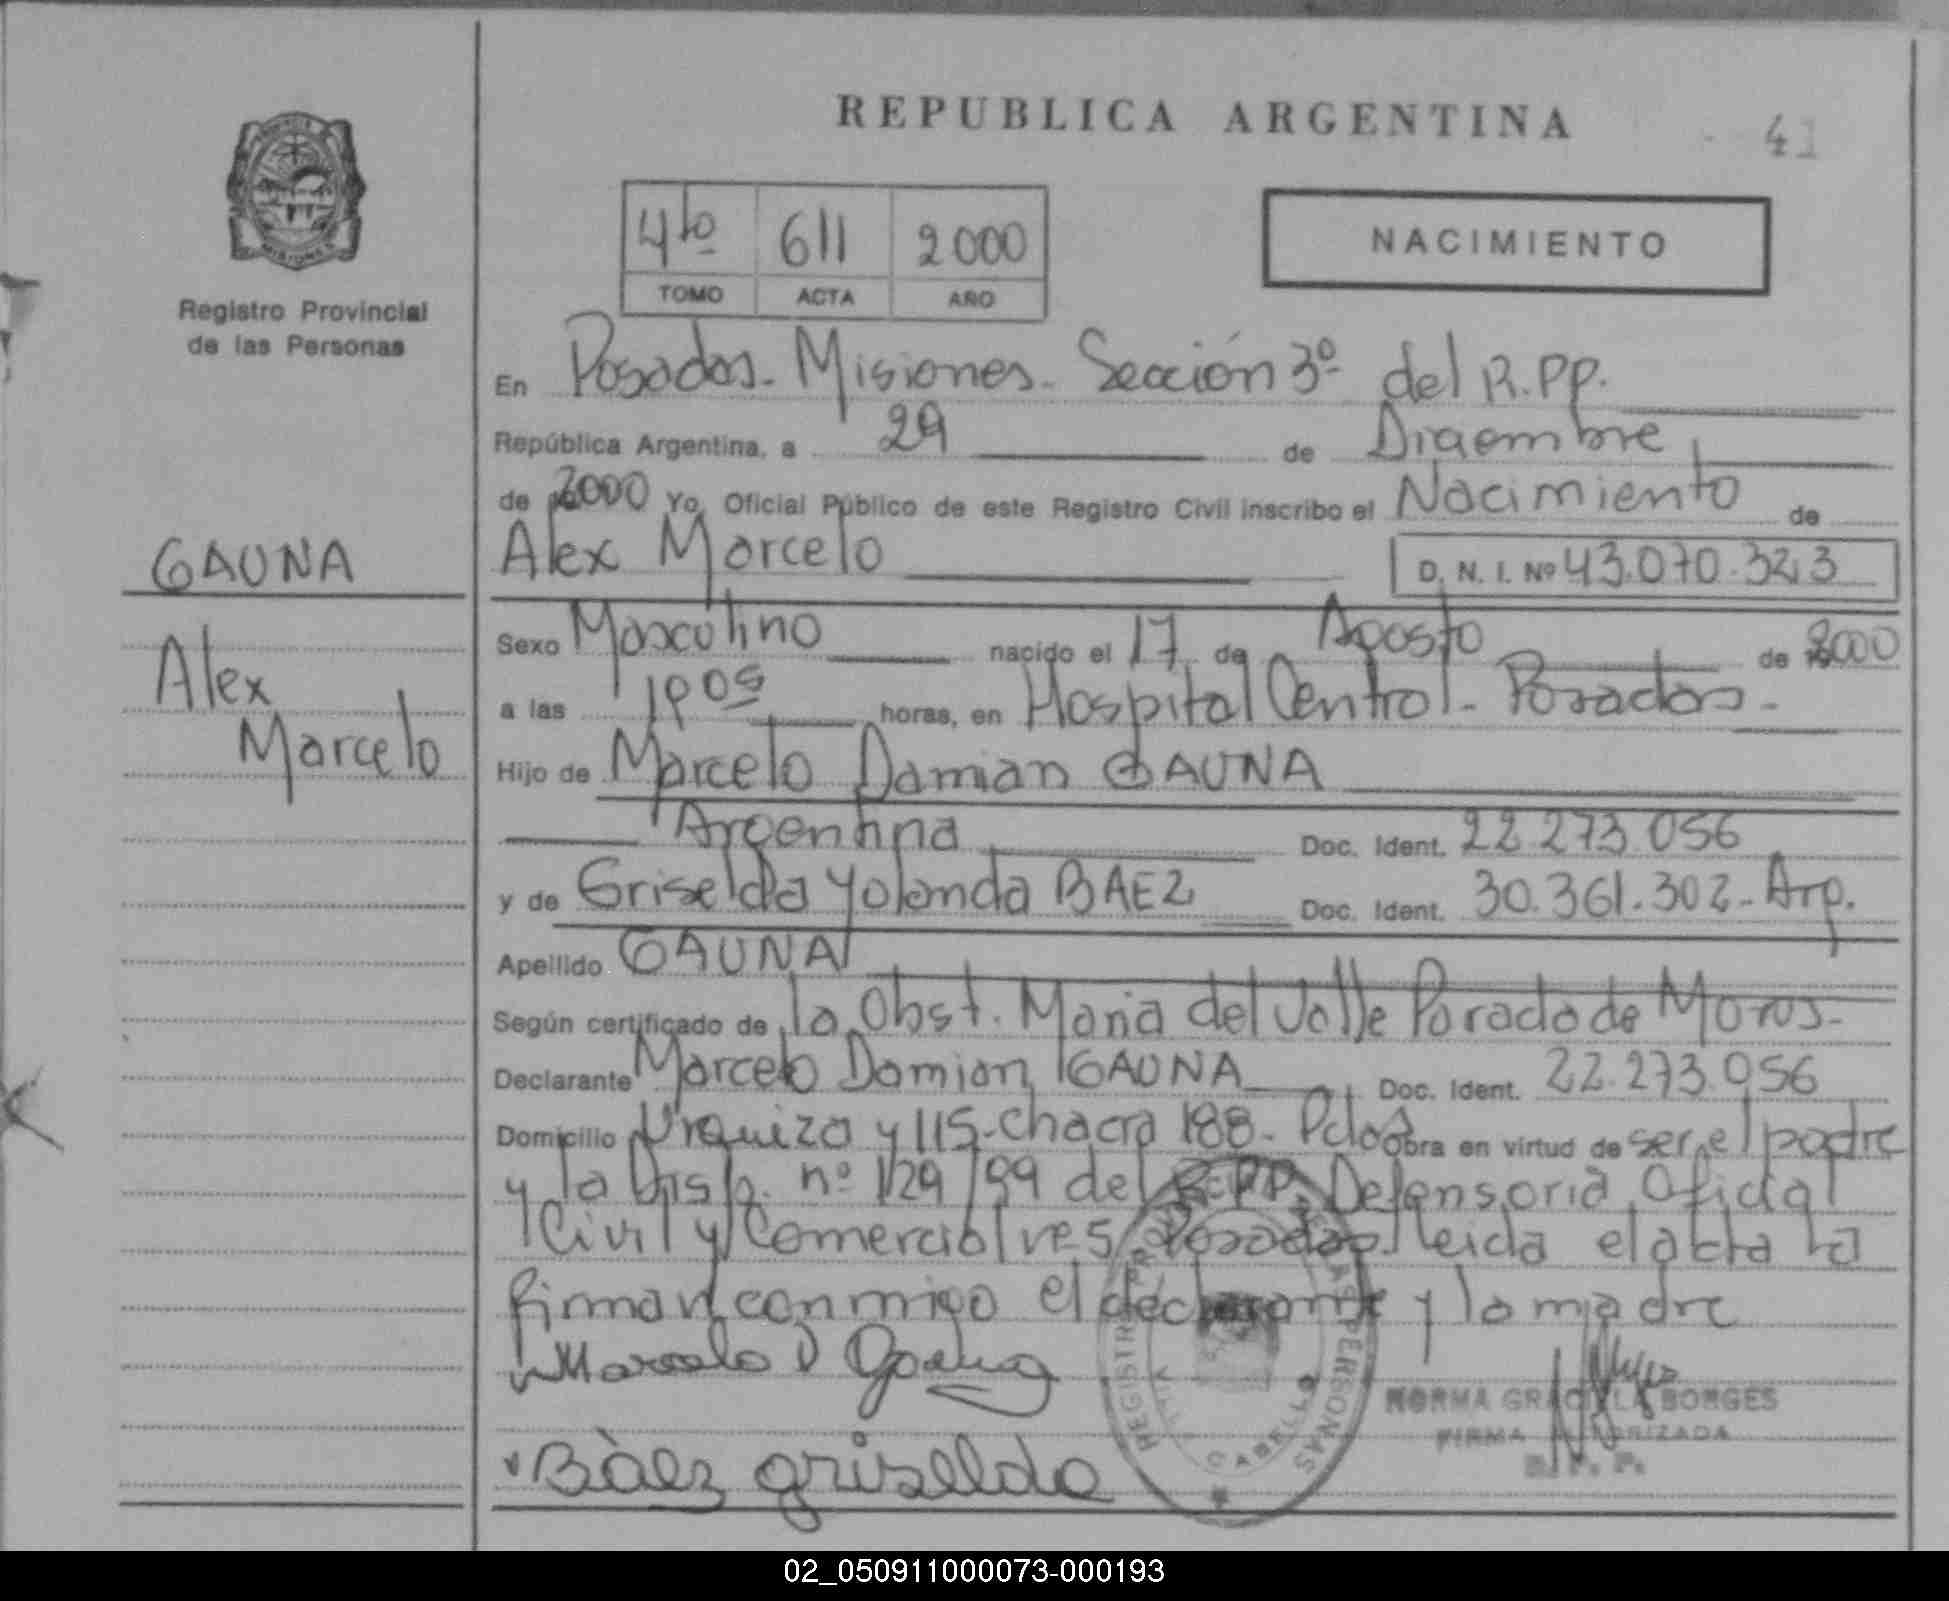 REPUBLICA ARGENTINA
41
4to 611 2000
TOMO ACTA AÑO
NACIMIENTO
Registro Provincial
de las Personas
En Posadas - Misiones - Sección 3º del R.PP.
República Argentina, a 29 de Diciembre
de 2000 Yo, Oficial Público de este Registro Civil inscribo el Nacimiento de
GAUNA
Alex Marcelo D. N. I. Nº 43.070.323
Sexo Masculino nacido el 17 de Agosto de 2000
Alex
Marcelo
a las horas, en Hospital Central - Posadas -
Hijo de Marcelo Damian GAUNA
Argentina Doc. Ident. 22.273.056
y de Griselda Yolanda BAEZ Doc. Ident. 30.361.302 - Arg.
Apellido GAUNA
Según certificado de la Obst. Maria del Valle Parada de
Declarante Marcelo Damian GAUNA Doc. Ident. 22.273.056
Domicilio Urquiza y 115 - chacra 188 - Pdas Obra en virtud de ser el padre
y la Disp. nº 129/99 del R.PP. Defensoria Oficial
Civil y Comercial Posadas leida el acta la
firman conmigo el declarante y la madre
Marcelo D Gauna
Bàez griselda
REGISTRO PROVINCIAL DE LAS PERSONAS
VILLA CABELLO
NORMA GRACIELA BORGES
FIRMA AUTORIZADA
R. P. P.
02_050911000073-000193